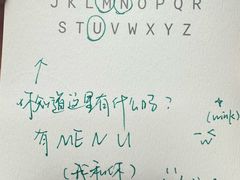 J K L M N O P Q R
S T U V W X Y Z
你知道这里有什么吗？
有 M E N U
(wink)
(我和你)